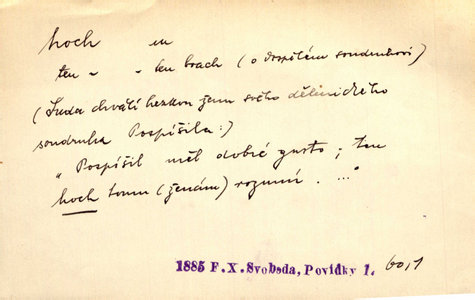 hoch m
ten „ - ten brach (o dospělém soudruhovi)
(Juda chválí hezkou ženu svého dělnického
soudruha Pospíšila:)
„Pospíšil měl dobré gusto; ten
hoch tomu (ženám) rozumí. ..."
1885 F.X.Svoboda, Povídky 1. 60,1